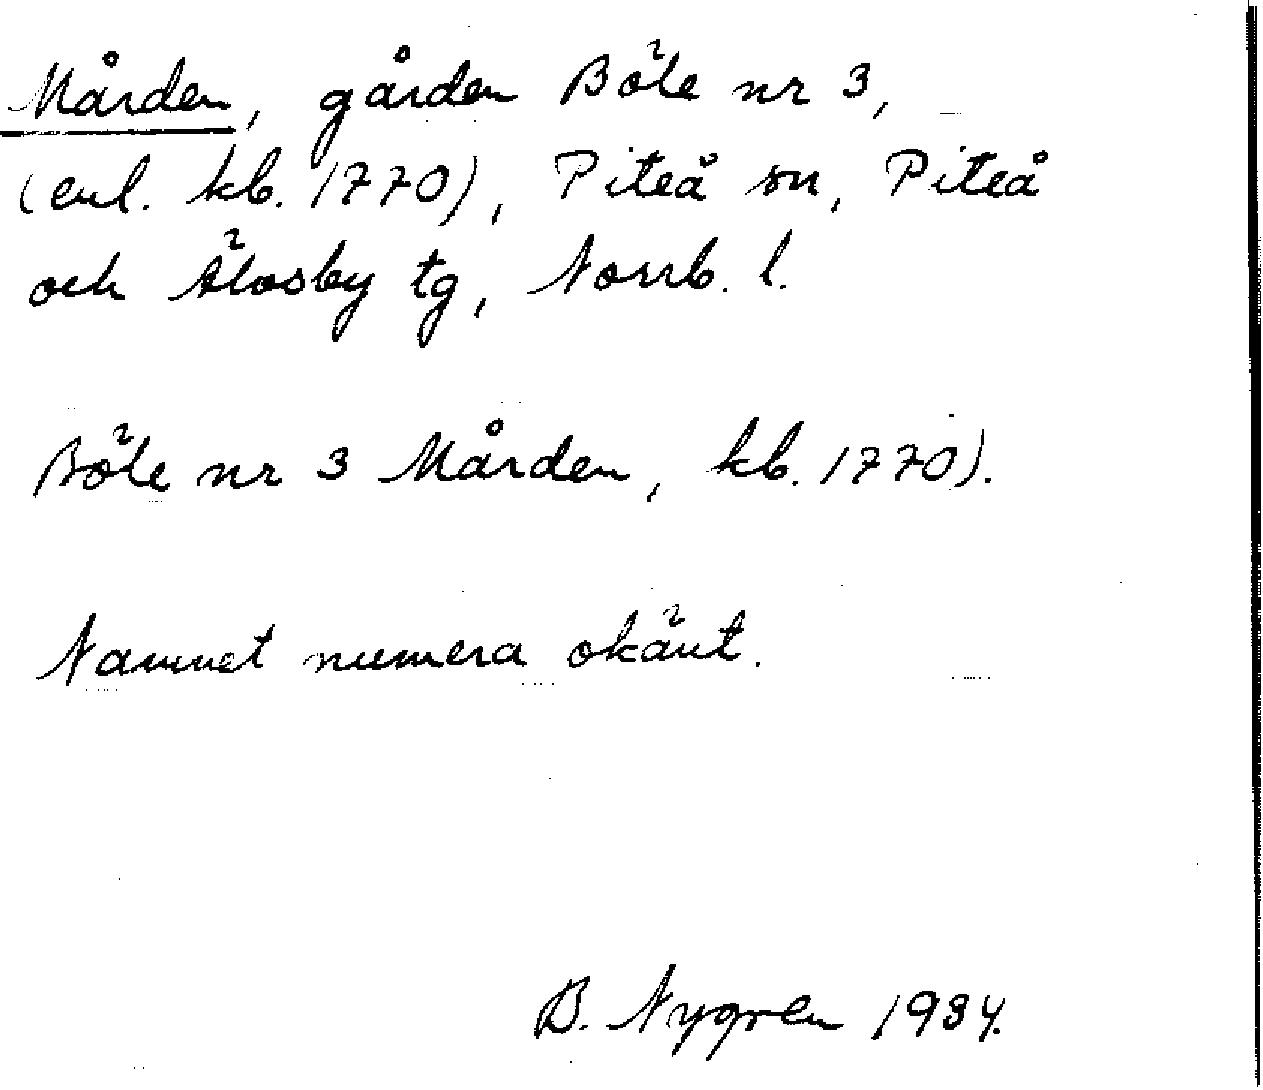 Mården, gården Böle nr 3,
(enl. kb. 1770), Piteå sn, Piteå
och Älvsby tg, Norrb. l.
Böle nr 3 Mården, kb. 1770).
Namnet numera okänt.
B. Nygren 1934.